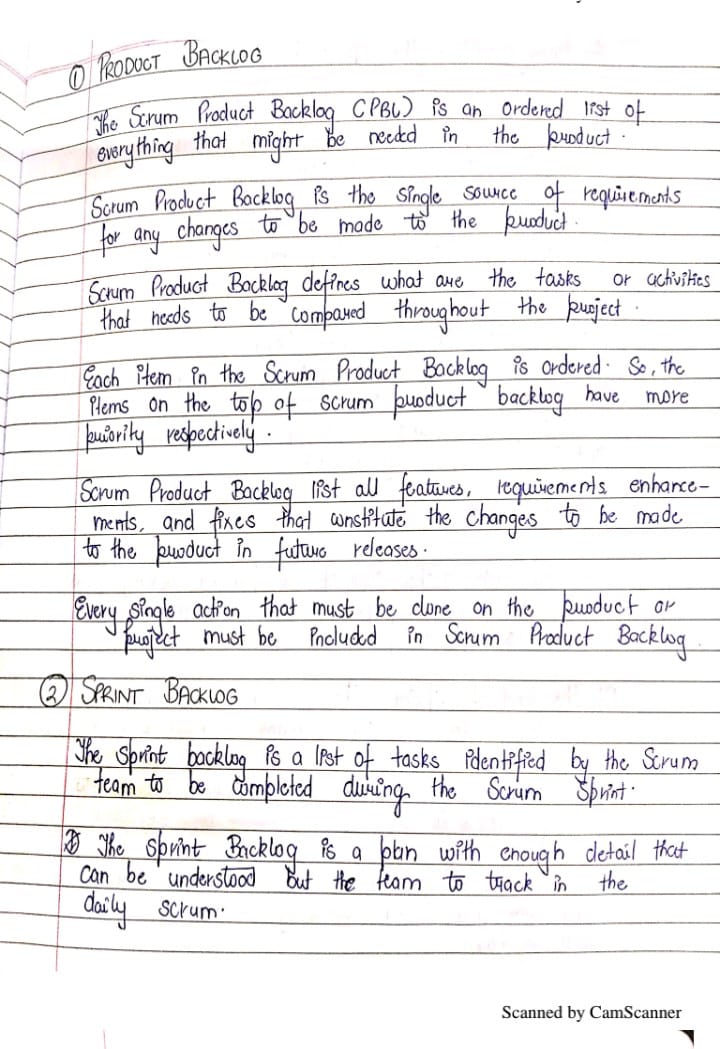 ① PRODUCT BACKLOG
The Scrum Product Backlog (PBL) is an ordered list of
everything that might be needed in the product.
Scrum Product Backlog is the single source of requirements
for any changes to be made to the product.
Scrum Product Backlog defines what are the tasks or activities
that needs to be compared throughout the project.
Each item in the Scrum Product Backlog is ordered. So, the
items on the top of scrum product backlog have more
priority respectively.
Scrum Product Backlog list all features, requirements enhance-
ments, and fixes that constitute the changes to be made
to the product in future releases.
Every single action that must be done on the product or
project must be included in Scrum Product Backlog.
② SPRINT BACKLOG
The sprint backlog is a list of tasks identified by the Scrum
team to be completed during the Scrum Sprint.
The Sprint Backlog is a plan with enough detail that
can be understood but the team to track in the
daily scrum.
Scanned by CamScanner